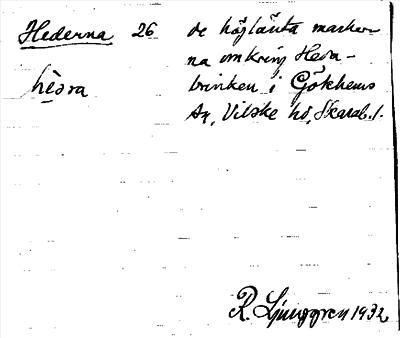 Hederna 26 de höglänta marker-
na omkring Heda-
hèdra brinken i Gökhems
sn, Vilske hd, Skarab. l.
R. Ljunggren 1932